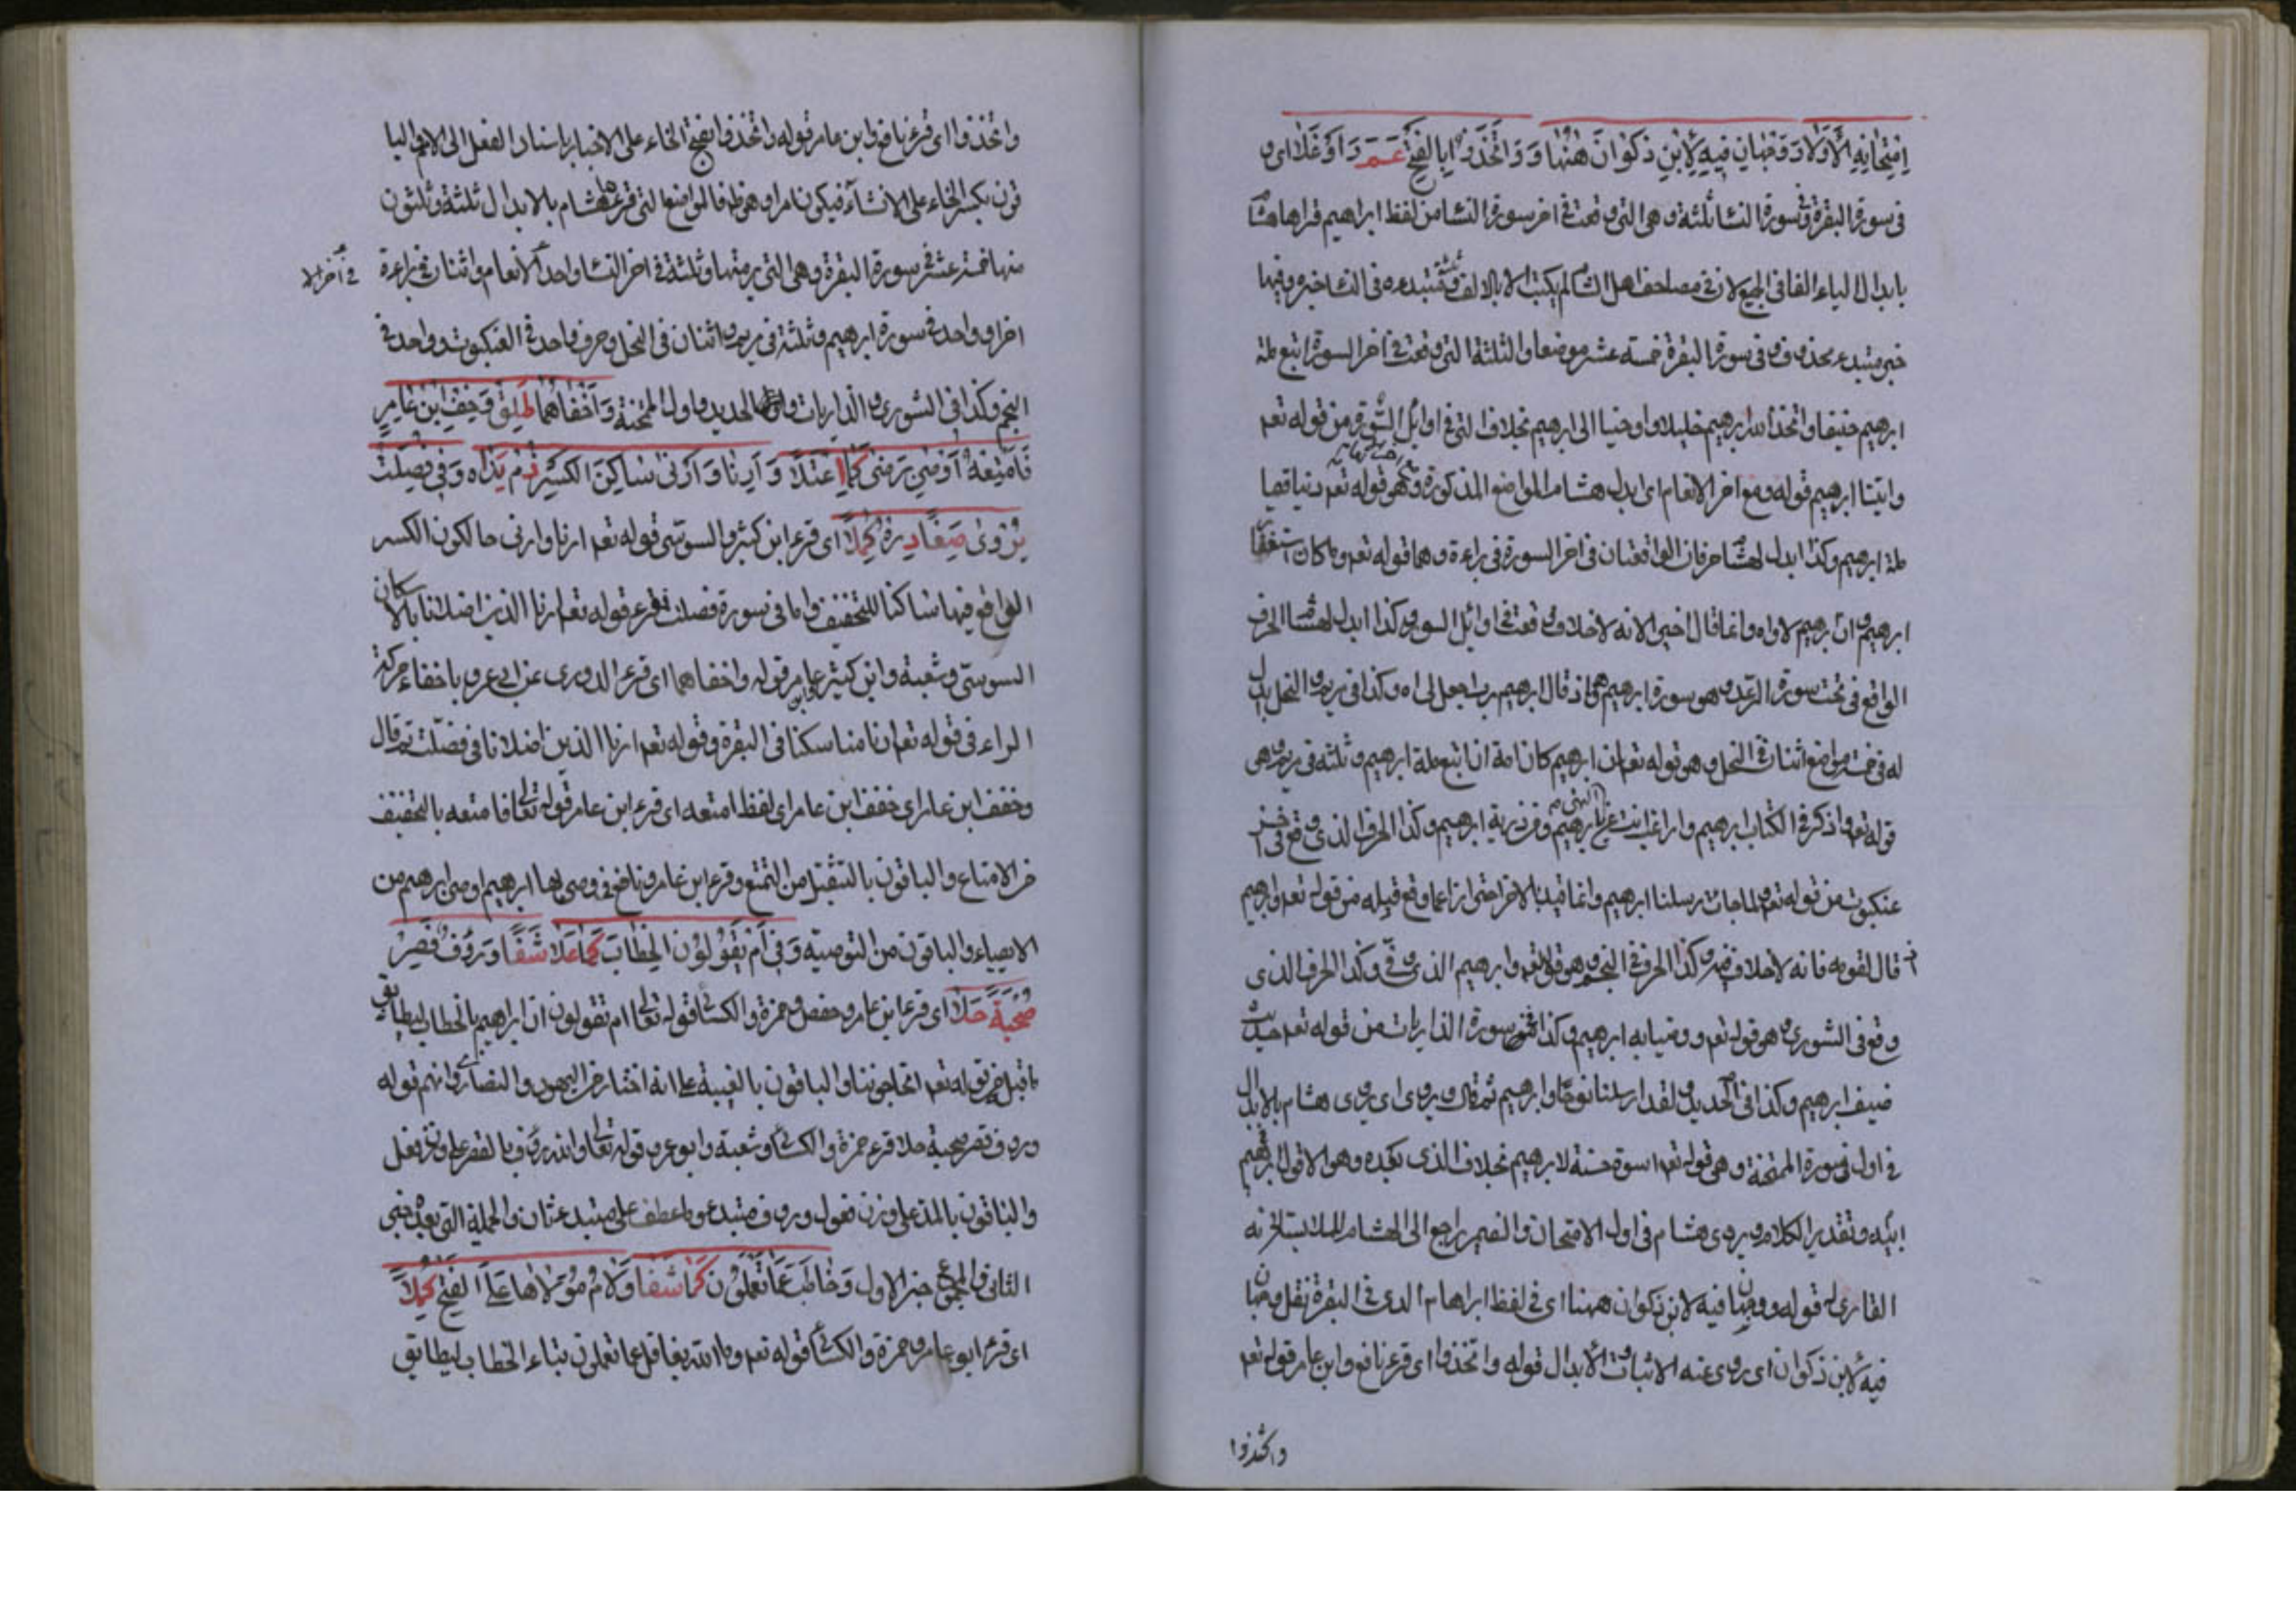 اِمْتِحَانِهِ الْاَوَّلَا دَوَجْهَانِ فِيهِ لِابْنِ ذَكْوَانَ هٰهُنَا وَ وَاتَّخِذُوا بِالْفَتْحِ عَمَّ دَاَوْغَلَا اى و
فى سورة البقرة وفى سورة النسا ثلثة وهى التى وقعت فى اخر سورة النسا من لفظ ابراهيم قراها هشام
بابدال الياء الفا فى الجميع لان فى مصاحف اهل الشام لم يكتب الا بالالف فثلثة مبتدء وفى النسا خبره وفيها
خبر مبتدء محذوف وفى سورة البقرة خمسة عشر موضعا والثلثة التى وقعت فى اخر السورة اتبع ملة
ابرهيم حنيفا واتخذ الله ابرهيم خليلا واوحينا الى ابرهيم بخلاف التى فى اوائل السورة من قوله تعه
واتينا ابرهيم قوله ومع اخر الانعام اى ابدل هشام المواضع المذكورة وهى قوله تعه دينا قيما
ملة ابرهيم وكذا ابدل لهشام حرفان الواقعتان فى اخر السورة فى براءة وهما قوله تعه وما كان استغفار
ابرهيم وان ابرهيم لاواه وانما قال اخيرا لانه لاخلاف وقعت فى اوائل السور وكذا ابدل لهشام الحرف
الواقع فى تحت سورة الرعد وهو سورة ابرهيم هى اذ قال ابرهيم رب اجعل الى اه وكذا فى مريم والنحل ابدل
له فى خمسة مواضع اثنان فى النحل وهو قوله تعه ان ابرهيم كان امة ان اتبع ملة ابرهيم وثلثه فى مريم وهى
قوله تعه واذكر فى الكتاب ابرهيم واراغب انت عن الهتى يا ابرهيم ومن ذرية ابرهيم وكذا الحرف الذى وقع فى اخر
عنكبوت من قوله تعه ولما جات رسلنا ابرهيم وانما قيد بالاخر احترازا عما وقع قبله من قوله تعه وابرهيم
اذ قال لقومه فانه لاخلاف فيه وكذا الحرف فى النجم وهو قوله تعه وابرهيم الذى وفى وكذا الحرف الذى
وقع فى الشورى وهو قوله تعه ووصينا به ابرهيم وكذا فى سورة الذاريات من قوله تعه حديث
ضيف ابرهيم وكذا فى الحديد ولقد ارسلنا نوحا وابرهيم ثم قال ويروى اى يروى هشام بالابدال
فى اول سورة الممتحنة وهى قوله تعه اسوة حسنة لابرهيم بخلاف الذى بعده وهو الا قول ابرهيم
ابيه وتقدير الكلام ويروى هشام فى اول الامتحان والضمير راجع الى الهشام
القارى قوله ووجهان فيه لابن ذكوان ههنا اى فى لفظ ابراهام الذى فى البقرة نقل وجهان
فيه لابن ذكوان اى يروى عنه الاثبات والابدال قوله واتخذوا اى قرء نافع وابن عامر قوله تعه
واتخذوا
واتخذوا اى قرء نافع وابن عامر قوله واتخذوا بفتح الخاء على الاخبار باسناد الفعل الى الامم والبا
قون بكسر الخاء على الانشاء فيكون امرا وهو ظ فالمواضع التى قرءها هشام بالابدال ثلثة وثلثون
منها خمسة عشر فى سورة البقرة وهى التى برمتها وثلثة فى اخر النسا واحد الانعام واثنان فى براءة
فى آخر الا
اخر او واحد فى سورة ابرهيم وثلثة فى مريم واثنان فى النحل وحرف واحد فى العنكبوت وواحد فى
النجم وكذا فى الشورى والذاريات والحديد واول الممتحنة وَاَخْفَاهُمَا طَلِقٌ وَخِفُّ ابْنِ عَامِرٍ
فَاُمْتِعُهُ اَوْصٰى بَوَصّٰى كَمَا اعْتَلَا وَ اَرِنَا وَ اَرْنِى سَاكِنَ الْكَسْرِ دُمْ يَدًا وَفِى فُصِّلَتْ
يُرْوٰى صَفَا دَرِّهِ كُلًا اى قرء ابن كثير والسوسى قوله تعه ارنا وارنى حا لكون الكسر
الواقع فيها ساكنا للتخفيف واما فى سورة فصلت فقرء قوله تعه ارنا الذين اضلانا بالاسكان
السوسى وشعبة وابن كثير وابن عامر قوله واخفاهما اى قرء الدورى عن ابى عمرو باخفاء حركة
الراء فى قوله تعه ارنا مناسكنا فى البقرة وقوله تعه ارنا الذين اضلانا فى فصلت ثم قال
وخفف ابن عامر اى خفف ابن عامر اى لفظ امتعه اى قرء ابن عامر قوله تعالى فامتعه بالتخفيف
من الامتاع والباقون بالتثقيل من التمتع وقرء ابن عامر ونافع فى ووصى بها ابرهيم اوصى ابرهيم من
الايصاء والباقون من التوصية وَفِى اَمْ يَقُولُونَ الْخِطَابُ كَمَا عَلَا شَفَا وَرَؤُفٌ قَصْرُ
صُحْبَةٍ حَلَا اى قرء ابن عامر وحفص وحمزة والكسائى قوله تعالى ام تقولون ان ابراهيم بالخطاب ليطابق
ما قبل من قوله تعه اتحاجوننا والباقون بالغيبة على انه اخبار عن اليهود والنصارى وانهم قوله
ورءوف قصر صحبة حلا قرء حمزة والكسائى وشعبة وابو عمرو قوله تعالى والله رؤف بالقصر على وزن فعل
والباقون بالمد على وزن فعول ورءوف مبتدء وما عطف على مبتدء ثان والجملة التى بعده خبر
الثانى والمجموع خبر الاول وَخَاطَبَ عَمَّا تَعْمَلُونَ كَمَا شَفَا وَلَامُ مُوَلَّاهَا عَلَى الْفَتْحِ كُمِّلَا
اى قرء ابو عامر وحمزة والكسائى قوله تعه وما الله بغافل عما تعملون بتاء الخطاب ليطابق